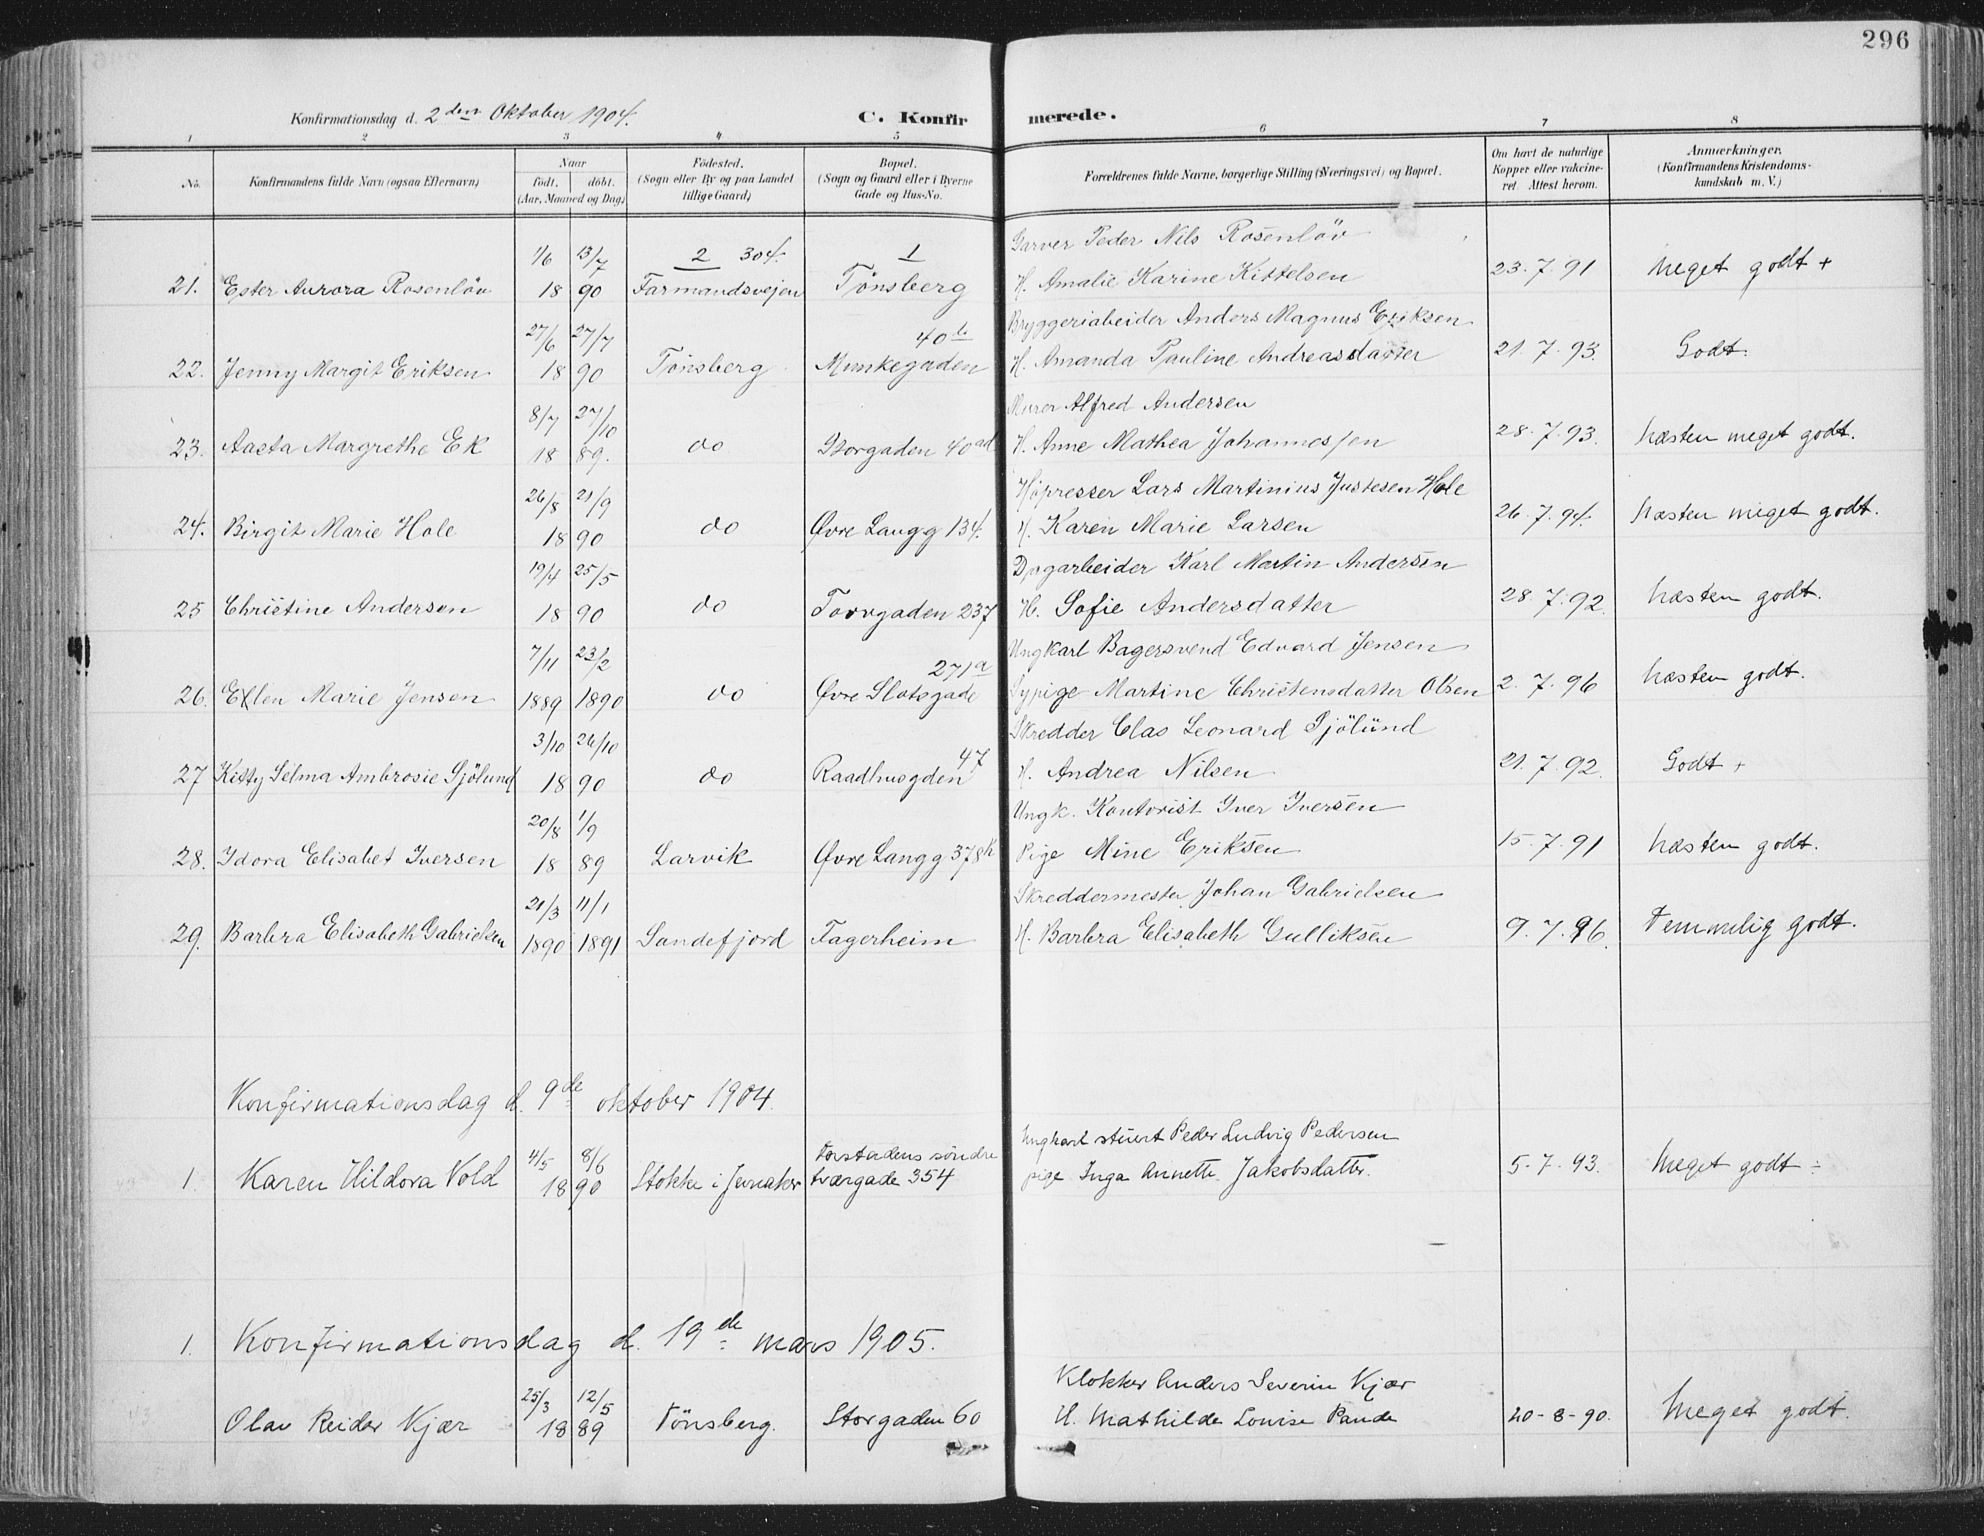 296
Konfirmationsdag d. 2den Oktober 1904.
C. Konfirmerede.
1 2 3 4 5 6 7 8
No.
Konfirmandens fulde Navn (ogsaa Efternavn)
Naar
født. døbt.
(Aar, Maaned og Dag)
Fødested.
(Sogn eller By og paa Landet
tillige Gaard)
Bopæl.
(Sogn og Gaard eller i Byerne
Gade og Hus-No.
Forældrenes fulde Navne, borgerlige Stilling (Næringsvei) og Bopæl.
Om havt de naturlige
Kopper eller vakcine-
ret. Attest herom.
Anmærkninger.
(Konfirmandens Kristendoms-
kundskab m. V.)
1/6 13/7 2 304. 1 Garver Peder Nils Rosenlöv
21. Ester Aurora Rosenlöv 18 90 Farmandsvejen Tønsberg H. Amalie Karine Kittelsen 23.7.91 Meget godt +
27/6 27/7 40b Bryggeriabeider Anders Magnus Eriksen
22. Jenny Margit Eriksen 18 90 Tønsberg Munkegaden H. Amanda Pauline Andreasdatter 21.7.93. Godt.
8/7 27/10 Murer Alfred Andersen
23. Aasta Margrethe Ek 18 89. do Storgaden 40ad H. Anne Mathea Johannesjen 28.7.93. Næsten meget godt.
26/8 21/9 Højresser Lars Martinius Justesen Hole
24. Birgit Marie Hole 18 90 do Øvre Langg 134. H. Karen Marie Larsen 26.7.94. Næsten meget godt.
19/4 25/5 Dagarbeider Karl Martin Andersen
25 Christine Andersen 18 90 do Torvgaden 237 H. Sofie Andersdatter 28.7.92. Næsten godt.
7/11 23/2 271a Ungkarl Bagersvend Edvard Jensen
26. Ellen Marie Jensen 1889 1890 do Øvre Slotsgade Sypige Martine Christensdatter Olsen 2.7.96 Næsten godt.
3/10 26/10 47 Skredder Clas Leonard Sjölund
27 Kitty Selma Ambrosie Sjölund 18 90 do Raadhusgden H. Andrea Nilsen 21.7.92. Godt +
20/8 1/9 Ungk. Kontorist Iver Iversen
28. Idora Elisabet Iversen 18 89 Larvik Øvre Langg 378k Pige Mine Eriksen 15.7.91 Næsten godt.
21/3 11/1 Skreddermester Johan Gabrielsen
29. Barbra Elisabeth Gabrielsen 1890 1891 Sandefjord Fagerheim H. Barbra Elisabeth Gulliksen 9.7.96. Temmelig godt.
Konfirmationsdag d. 9de oktober 1904.
4/5 8/6 Forstadens søndre Ungkarl stuert Peder Ludvig Pedersen
1. Karen Hildora Vold 18 90 Stokke i Jevnaker tværgade 354 pige Inga Annette Jakobsdatter. 5.7.93. Meget godt ÷
1. Konfirmationsdag d. 19de mars 1905.
25/3 12/5 Klokker Anders Severin Kjær
Olav Reidar Kjær 18 89 Tönsberg. Storgaden 60 H. Mathilde Louise Pande 20-8-90. Meget godt.